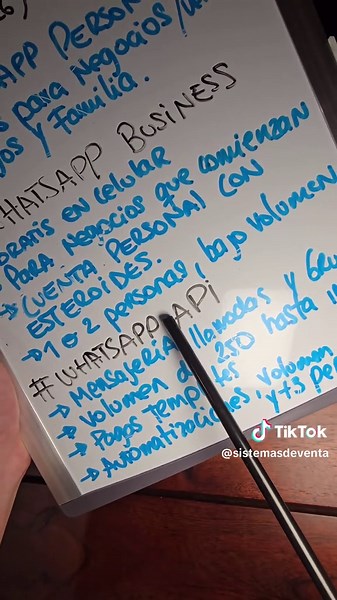 APP PERSON
para Negocios /
y Familia.
WHATSAPP BUSINESS
GRATIS EN Celular
Para Negocios que comienzan
→ CUENTA PERSONAL CON
ESTEROIDES.
→ 1 o 2 personas, bajo volumen
#WHATSAPP API
→ Mensajería, llamadas y GRU
→ Volumen de 250 hasta
→ Pagos templates
→ Automatizaciones, volumen y +3 per
TikTok
@sistemasdeventa